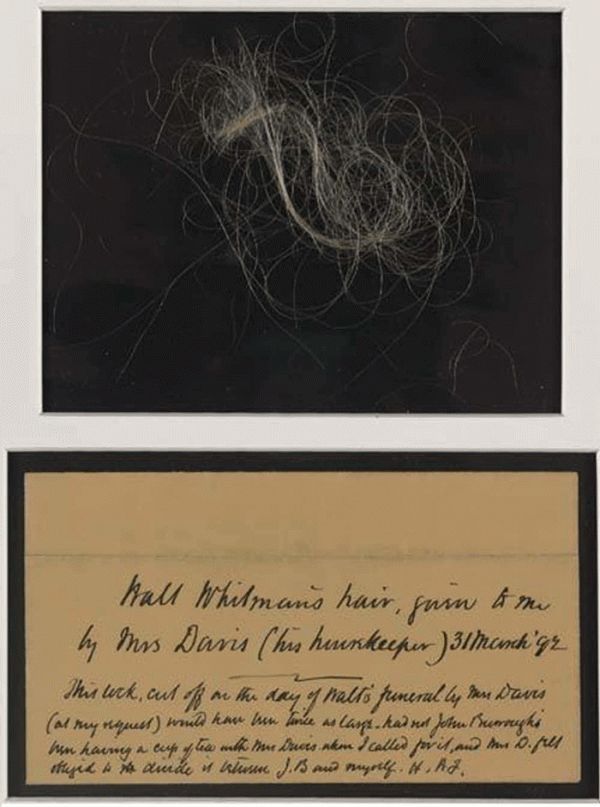 Walt Whitman's hair, given to me
by Mrs Davis (his housekeeper) 31 March '92
This lock, cut off on the day of Walt's funeral by Mrs Davis
(at my request) would have been twice as large, had not John Burroughs
been having a cup of tea with Mrs Davis when I called for it, and Mrs D. felt
obliged to divide it between J.B and myself. H.